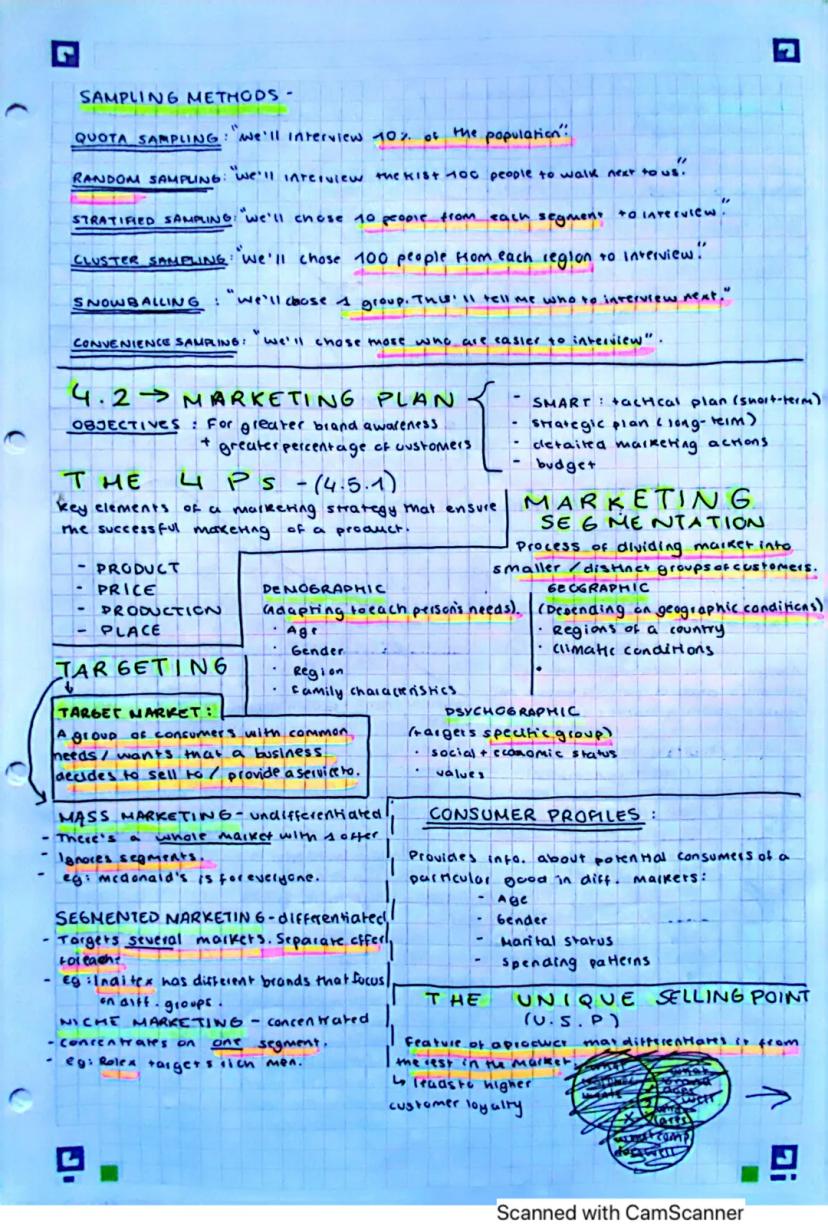 SAMPLING METHODS -
QUOTA SAMPLING: "we'll interview 10% of the population".
RANDOM SAMPLING: "we'll interview the first 100 people to walk next to us."
STRATIFIED SAMPLING: "we'll chose 10 people from each segment to interview."
CLUSTER SAMPLING: "we'll chose 100 people from each region to interview."
SNOWBALLING : "we'll chose 1 group. This'll tell me who to interview next."
CONVENIENCE SAMPLING: "we'll chose those who are easier to interview".
4.2 → MARKETING PLAN
OBJECTIVES : For greater brand awareness
+ greater percentage of customers
- SMART : tactical plan (short-term)
- strategic plan (long-term)
- detailed marketing actions
- budget
THE 4 PS - (4.5.1)
Key elements of a marketing strategy that ensure
the successful marketing of a product.
- PRODUCT
- PRICE
- PRODUCTION
- PLACE
MARKETING
SEGMENTATION
Process of dividing market into
smaller / distinct groups of customers.
DEMOGRAPHIC
(Adapting to each person's needs).
· Age
· Gender
· Region
· Family characteristics
GEOGRAPHIC
(Depending on geographic conditions)
· Regions of a country
· Climatic conditions
·
PSYCHOGRAPHIC
(targets specific group)
· social + economic status
· values
TARGETING
TARGET MARKET:
A group of consumers with common
needs / wants that a business
decides to sell to / provide a service to.
MASS MARKETING - undifferentiated
- There's a whole market with 1 offer
- Ignores segments.
- eg: mcdonald's is for everyone.
SEGMENTED MARKETING - differentiated
- Targets several markets. Separate offer
for each.
- eg: Inditex has different brands that focus
on diff. groups.
NICHE MARKETING - concentrated
- concentrates on one segment.
- eg: Rolex targets rich men.
CONSUMER PROFILES :
Provides info. about potential consumers of a
particular good in diff. markets:
- Age
- Gender
- Marital status
- spending patterns
THE UNIQUE SELLING POINT
(U.S.P)
Feature of a product that differentiates it from
the rest in the market
↳ leads to higher
customer loyalty
→
Scanned with CamScanner